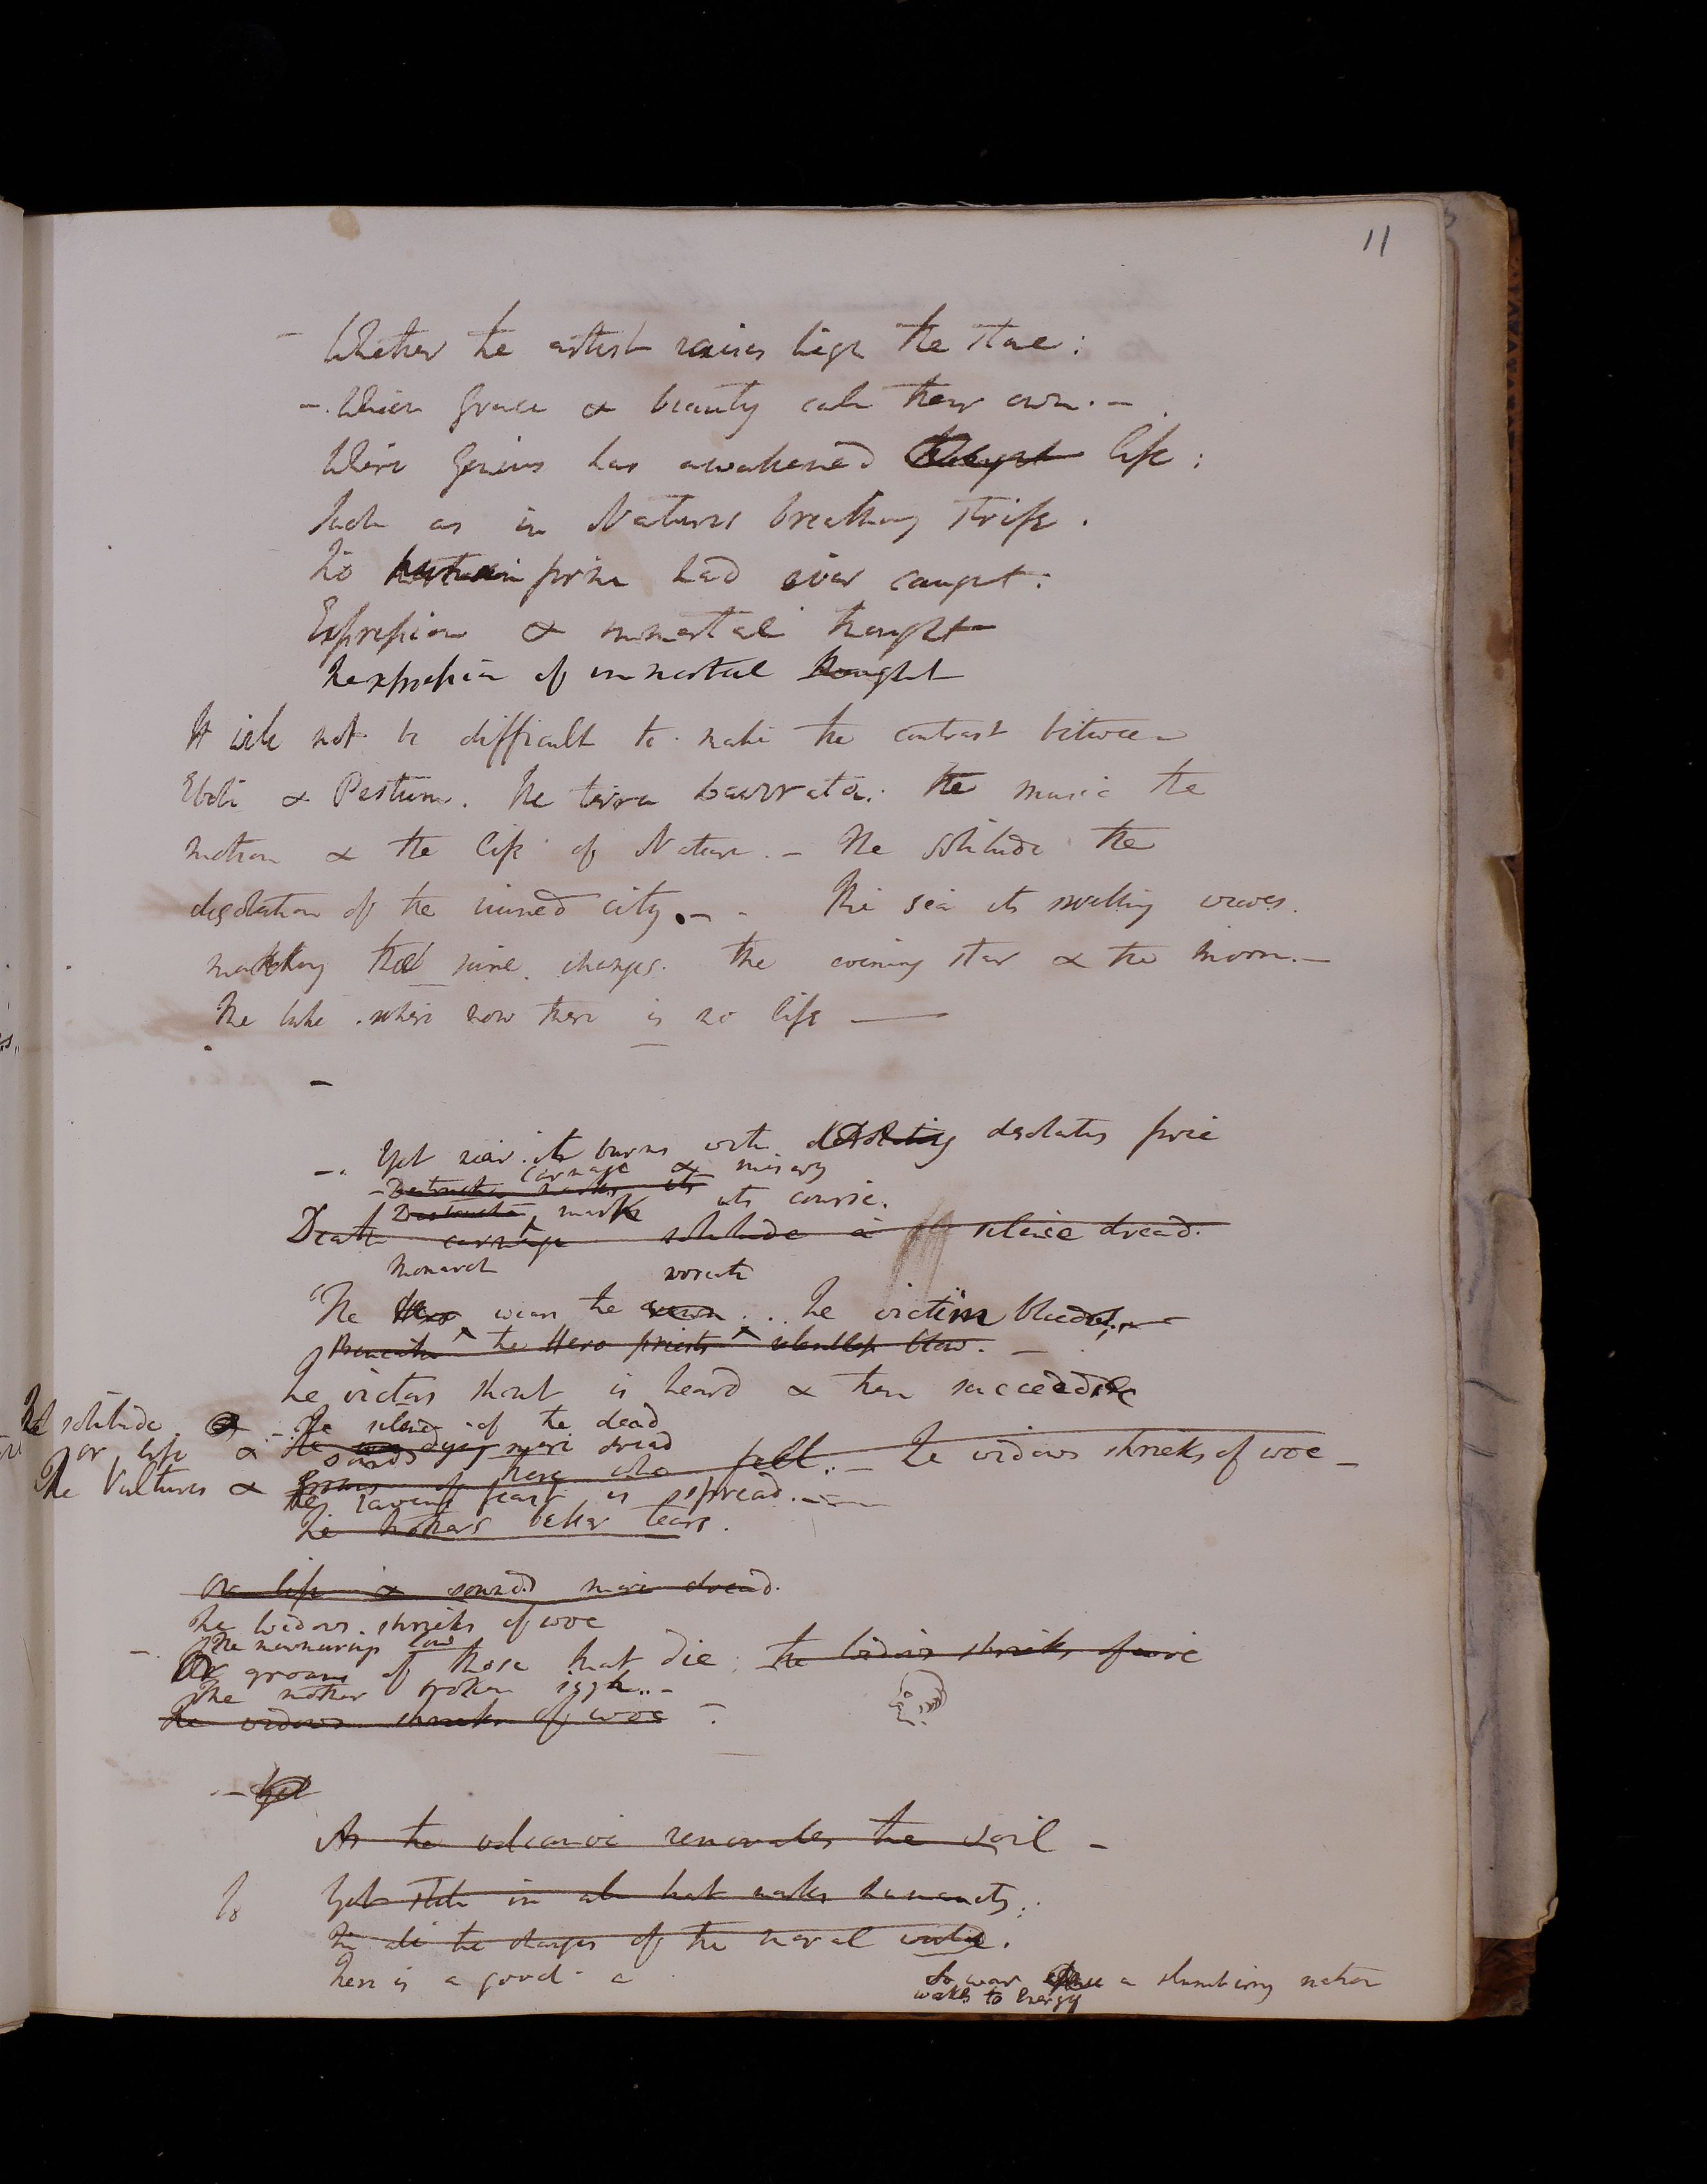 11
- Whether the artist raises high the stone:
-. Which Grace & beauty calls their own. -
Where Genius has awakened life:
Such as in Natures breathing strife.
No human form had ever caught:
Expression & immortal thought
The expression of immortal thought
It will not be difficult to make the contrast between
Eboli & Pestum. The terra the music the
motion & the life of Nature. - The solitude the
desolation of the ruined city. - - The sea its swelling waves.
making the same changes. the evening star & the moon. -
The lake. where now there is no life —
-
-. Yet near it burns with desolating desolates fire
carnage & misery
- Destruction marks its
Destruction mark its course.
Death carnage solitude a silence dread.
Monarch wreath
The Hero wears the crown ... The victim bleeds
Beneath the Hero priests relentless blow. -
The victors shout is heard & then succeed
The solitude & - The silence of the dead
or life & sounds more dread
groans of those who fell. - The widows shrieks of woe -
The Vultures & the ravens feast is spread. -
The mothers bitter tears.
Or life & sounds more dread.
The widows. shrieks of woe
- The murmurings low
Or groans of those that die. the widows shrieks of woe
The mother broken sigh.. -
The widows shrieks of woe -
- Yet
As the volcanoe renovates the soil -
So Yet still in all that makes humanity:
In all the changes of the moral world.
There is a good - a
So war a slumbering nation
wakes to Energy